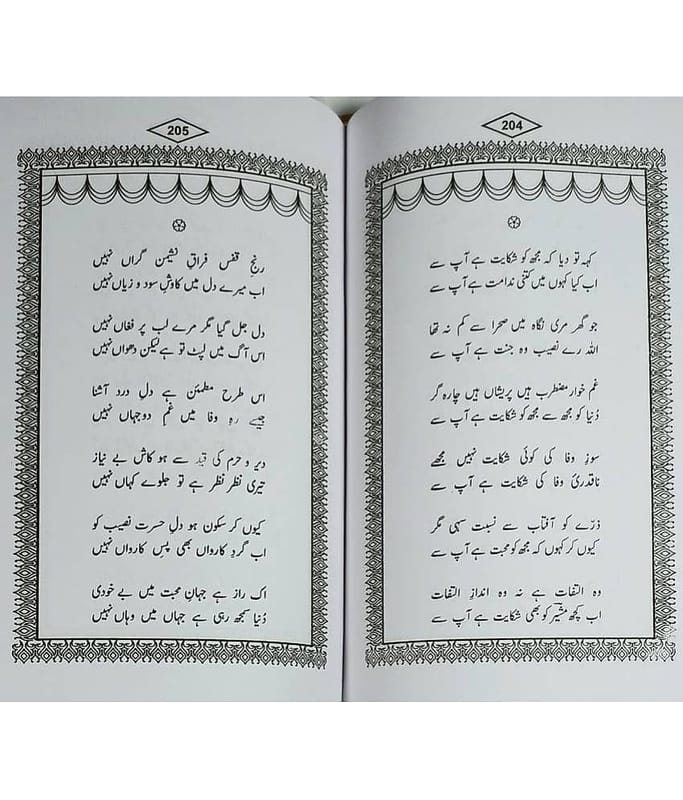 204
کہہ تو دیا کہ مجھ کو شکایت ہے آپ سے
اب کیا کہوں میں کتنی ندامت ہے آپ سے
جو گھر مری نگاہ میں صحرا سے کم نہ تھا
اللہ رے نصیب وہ جنت ہے آپ سے
غم خوار مضطرب ہیں پریشاں ہیں چارہ گر
دُنیا کو مجھ سے مجھ کو شکایت ہے آپ سے
سوزِ وفا کی کوئی شکایت نہیں مجھے
ناقدریٔ وفا کی شکایت ہے آپ سے
ذرّے کو آفتاب سے نسبت سہی مگر
کیوں کر کہوں کہ مجھ کو محبت ہے آپ سے
وہ التفات ہے نہ وہ اندازِ التفات
اب کچھ مشیر کو بھی شکایت ہے آپ سے
205
رنجِ قفس فراقِ نشیمن گراں نہیں
اب میرے دل میں کاوشِ سود و زیاں نہیں
دل جل گیا مگر مرے لب پر فغاں نہیں
اس آگ میں لپٹ تو ہے لیکن دھواں نہیں
اس طرح مطمئن ہے دلِ درد آشنا
جیسے رہِ وفا میں غمِ دو جہاں نہیں
دیر و حرم کی قید سے ہو کاش بے نیاز
تیری نظر نظر ہے تو جلوے کہاں نہیں
کیوں کر سکون ہو دلِ حسرت نصیب کو
اب گردِ کارواں بھی پسِ کارواں نہیں
اک راز ہے جہانِ محبت میں بے خودی
دُنیا سمجھ رہی ہے جہاں میں وہاں نہیں